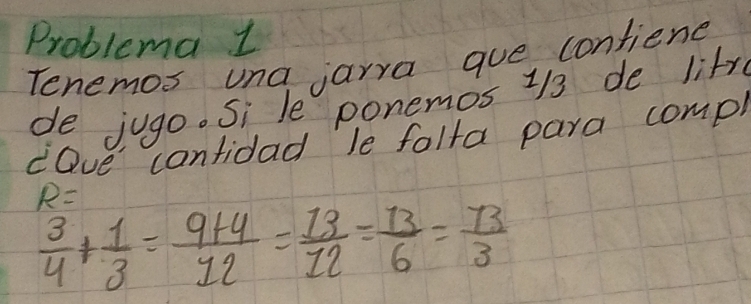 Problema 1
Tenemos una jarra que contiene
de jugo. Si le ponemos 1/3 de litro
¿Qué cantidad le falta para compl
R=
3/4 + 1/3 = 9+4/12 = 13/12 = 13/6 = 13/3